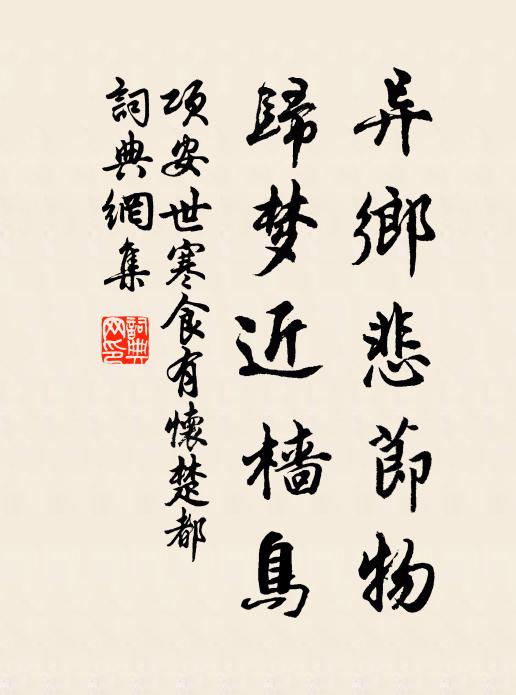 异鄉悲節物
歸梦近檣烏
項安世寒食有懷楚都
詞典網集
詞典网印